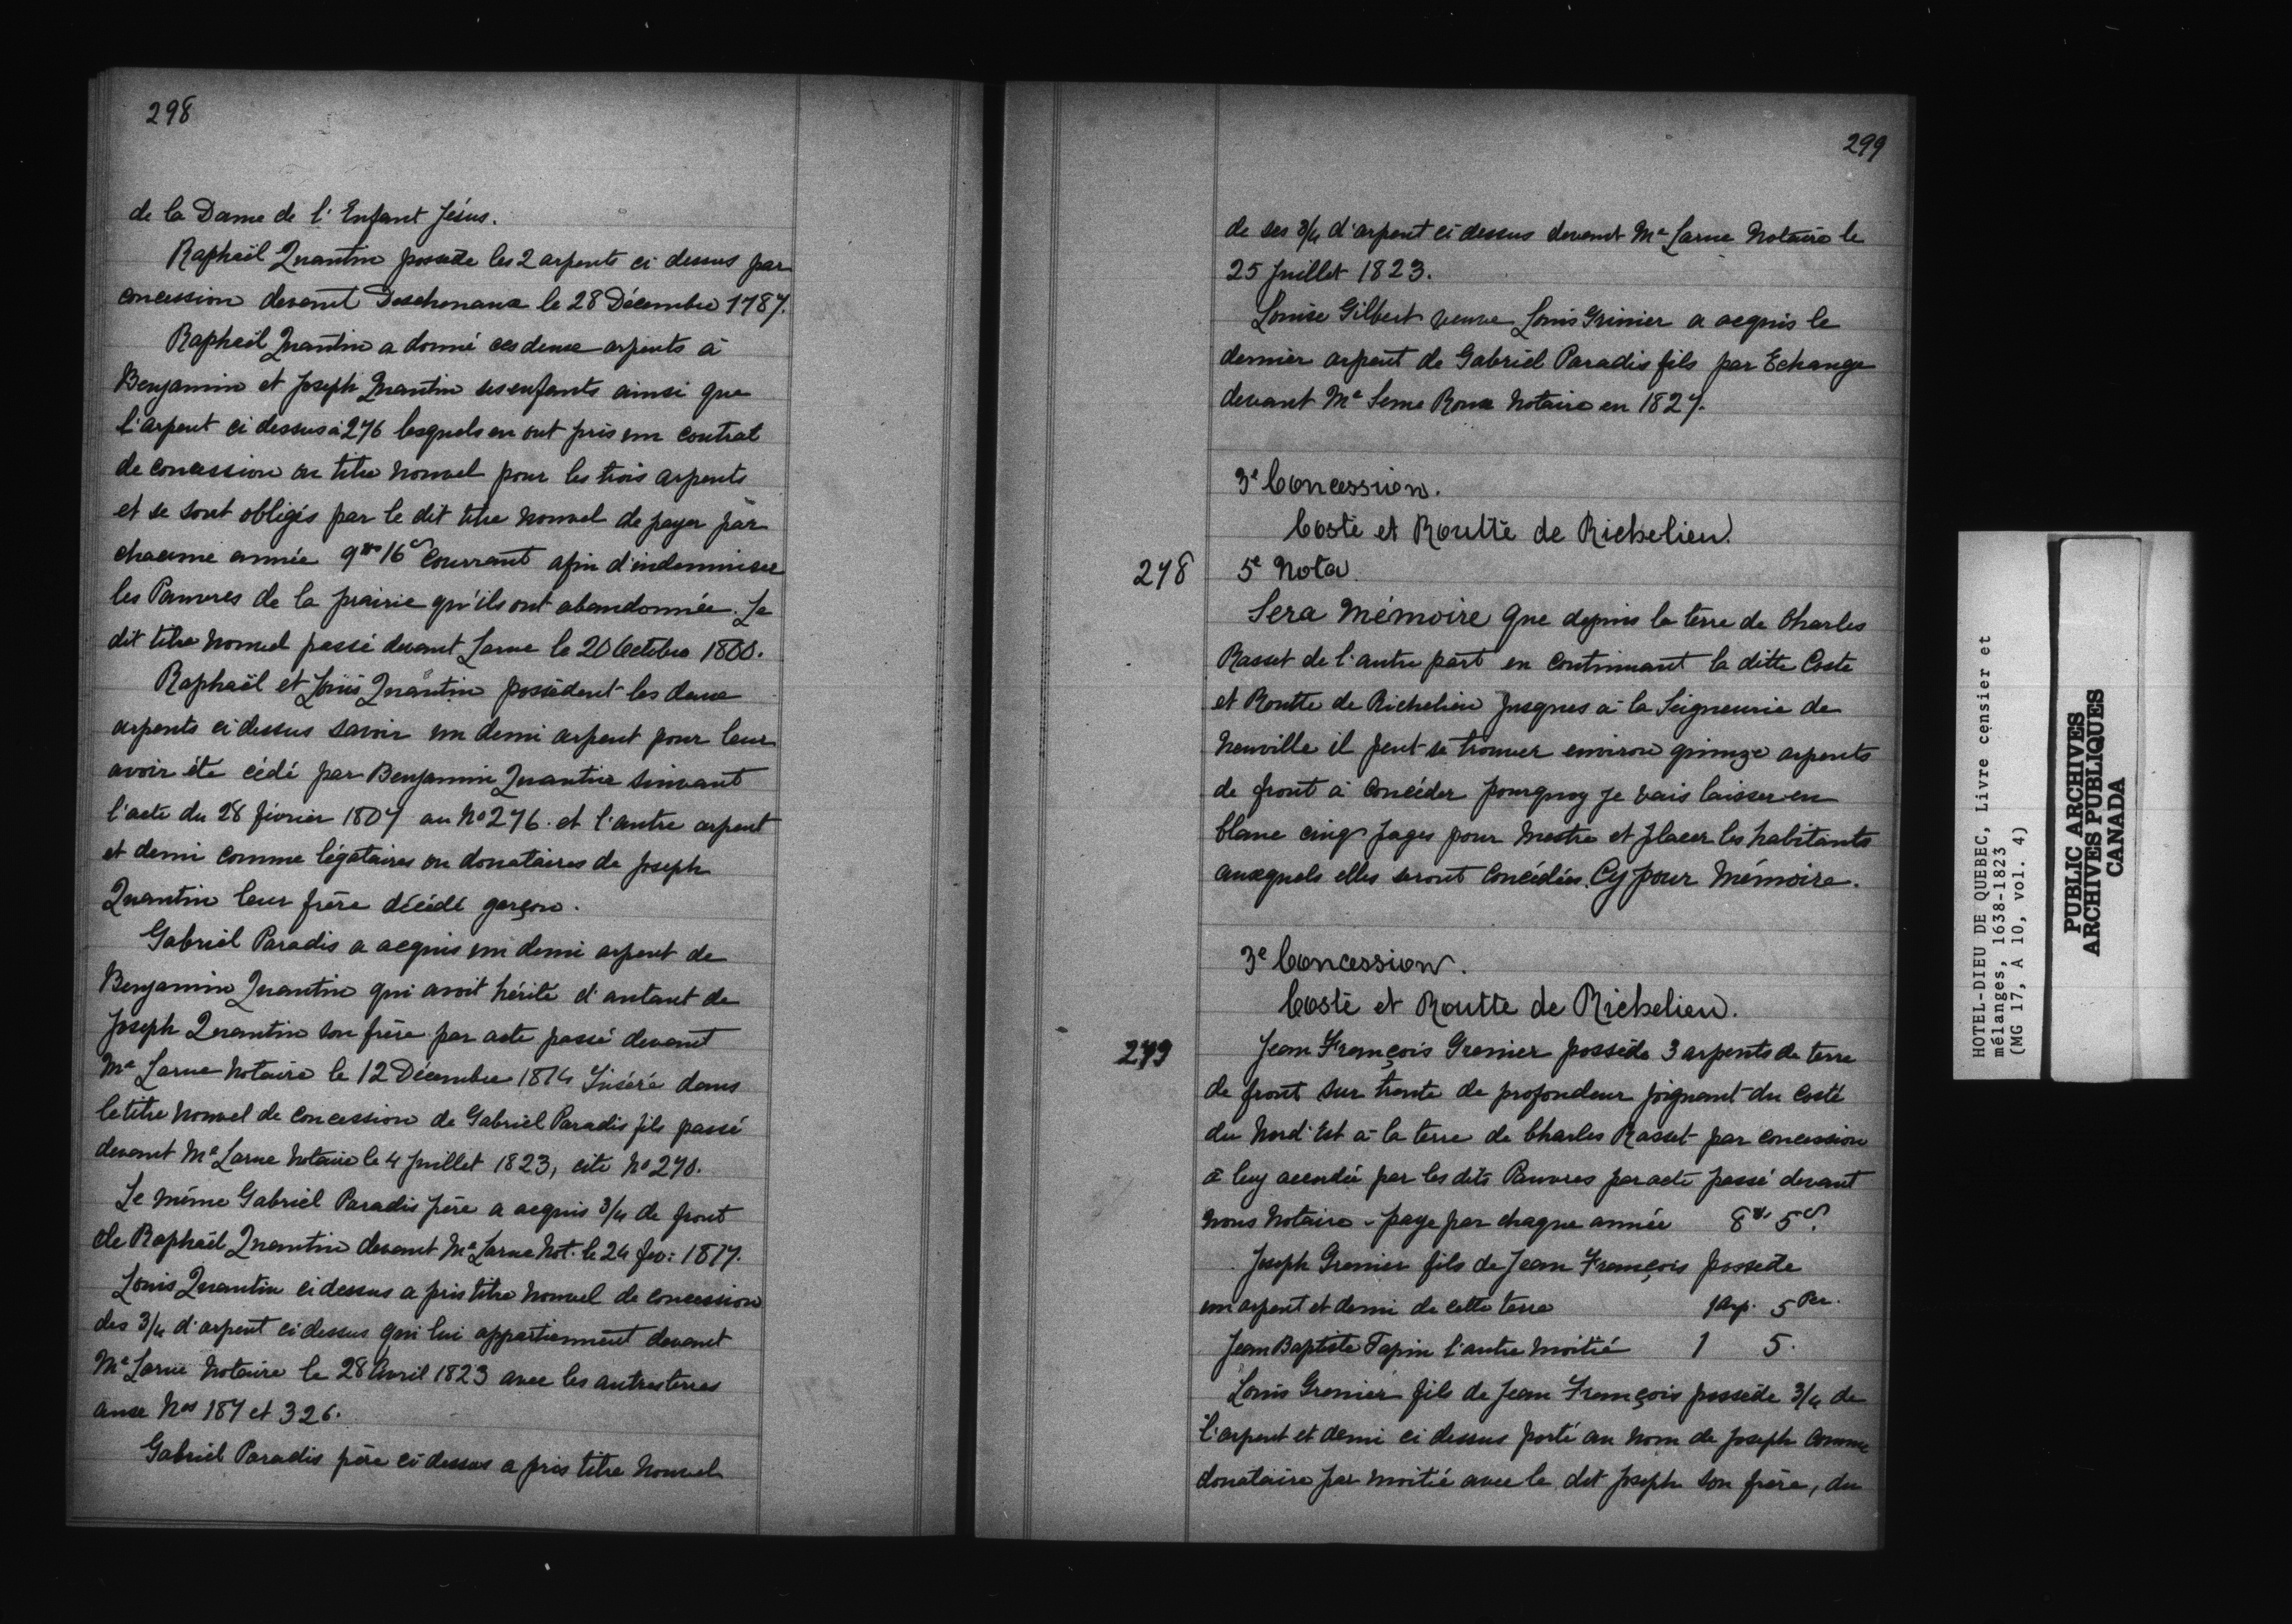 298
de la Dame de l'Enfant Jésus.
Raphaël Quantin possede les 2 arpents ci dessus par
concession devant Deschenaux le 28 Décembre 1787.
Raphaël Quantin a donné ces deux arpents à
Benjamin et Joseph Quantin ses enfants ainsi que
l'arpent ci dessus à 276 lesquels en ont pris un contrat
de concession ou titre nouvel pour les trois arpents
et se sont obligés par le dit titre nouvel de payer par
chacune année 9 16 s courrant afin d'indemniser
les Pauvres de la prairie qu'ils ont abandonnée. Le
dit titre nouvel passé devant Larue le 20 Octobre 1800.
Raphaël et Louis Quantin possèdent les deux
arpents ci dessus savoir un demi arpent pour leur
avoir été cédé par Benjamin Quantin suivant
l'acte du 28 février 1807 au No 276. et l'autre arpent
et demi comme légataires ou donataires de Joseph
Quantin leur frère décédé garçon.
Gabriel Paradis a acquis un demi arpent de
Benjamin Quantin qui avoit hérité d'autant de
Joseph Quantin son frère par acte passé devant
Me Larue Notaire le 12 Décembre 1814 Inséré dans
le titre nouvel de concession de Gabriel Paradis fils passé
devant Me Larue Notaire le 4 Juillet 1823, cité No 270.
Le même Gabriel Paradis père a acquis 3/4 de front
de Raphaël Quantin devant Me Larue Not. le 24 fev: 1817.
Louis Quantin ci dessus a pris titre nouvel de concession
des 3/4 d'arpent ci dessus qui lui appartiennent devant
Me Larue Notaire le 28 Avril 1823 avec les autres terres
aux Nos 187 et 326.
Gabriel Paradis père ci dessus a pris titre Nouvel
299
de ses 3/4 d'arpent ci dessus devant Me Larue Notaire le
25 Juillet 1823.
Louise Gilbert veuve Louis Grinier a acquis le
dernier arpent de Gabriel Paradis fils par Echange
devant Me Roux Notaire en 1827.
3e Concession.
Coste et Routte de Richelieu.
278 5e Nota.
Sera Mémoire que depuis la terre de Charles
Rasset de l'autre part en continuant la ditte Coste
et Routte de Richelieu Jusques à la Seigneurie de
Neuville il peut se trouver environ quinze arpents
de front à Concéder pourquoy je vais laisser en
blanc cinq pages pour Mestre et placer les habitants
auxquels elles seront Concédées. Cy pour Mémoire.
3e Concession.
Coste et Routte de Richelieu.
279 Jean François Grenier possède 3 arpents de terre
de front sur trente de profondeur joignant du Costé
du Nord'Est à la terre de Charles Rasset par concession
à luy accordée par les dits Pauvres par acte passé devant
Nous Notaire - paye par chaque année 8 5 s.
Joseph Grenier fils de Jean François possede
un arpent et demi de cette terre 1 arp. 5 Per.
Jean Baptiste Tapin l'autre moitié 1 5.
Louis Grenier fils de Jean François possède 3/4 de
l'arpent et demi ci dessus porté au nom de Joseph comme
donataire par moitié avec le dit Joseph son frère, du
HOTEL-DIEU DE QUEBEC, Livre censier et
mélanges, 1638-1823
(MG 17, A 10, vol. 4)
PUBLIC ARCHIVES
ARCHIVES PUBLIQUES
CANADA